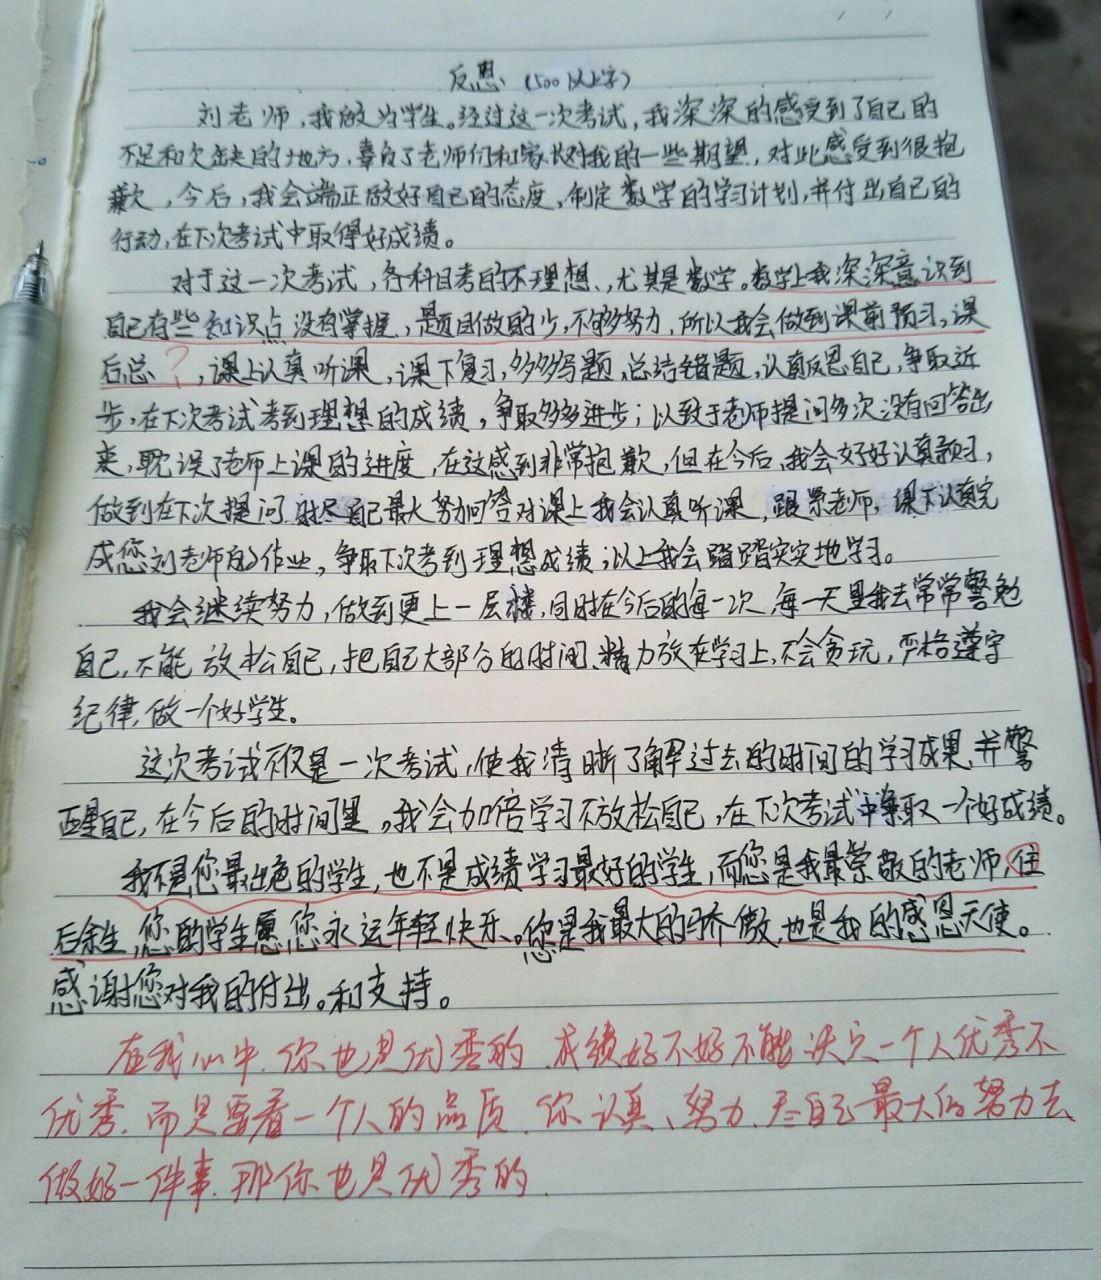 反思 (500以上字)
刘老师,我做为学生。经过这一次考试,我深深的感受到了自己的
不足和欠缺的地方,辜负了老师们和家长对我的一些期望,对此感受到很抱
歉,今后,我会端正做好自己的态度,制定数学的学习计划,并付出自己的
行动,在下次考试中取得好成绩。
对于这一次考试,各科目考的不理想、尤其是数学。数学上我深深意识到
自己有些知识点没有掌握,题目做的少,不够努力,所以我会做到课前预习,课
后总?,课上认真听课,课下复习,多多写题,总结错题,认真反思自己,争取近
步,在下次考试考到理想的成绩,争取多多进步;以致于老师提问多次没有回答出
来,耽误了老师上课的进度,在这感到非常抱歉,但在今后,我会好好认真预习,
做到在下次提问时尽自己最大努力回答对课上我会认真听课,跟紧老师,课下认真完
成您刘老师的作业,争取下次考到理想成绩;以上我会踏踏实实地学习。
我会继续努力,做到更上一层楼,同时在今后的每一次每一天里我去常常警勉
自己,不能放松自己,把自己大部分的时间、精力放在学习上,不会贪玩,严格遵守
纪律,做一个好学生。
这次考试不仅是一次考试,使我清晰了解过去的时间的学习成果,并警
醒自己,在今后的时间里,我会加倍学习不放松自己,在下次考试中争取一个好成绩。
我不是您最出色的学生,也不是成绩学习最好的学生,而您是我最崇敬的老师,住
后余生,您的学生愿您永远年轻快乐。您是我最大的骄傲,也是我的感恩天使。
感谢您对我的付出。和支持。
在我心中,你也是优秀的,成绩好不好不能决定一个人优秀不
优秀,而只要看一个人的品质,你认真、努力、尽自己最大的努力去
做好一件事,那你也是优秀的.